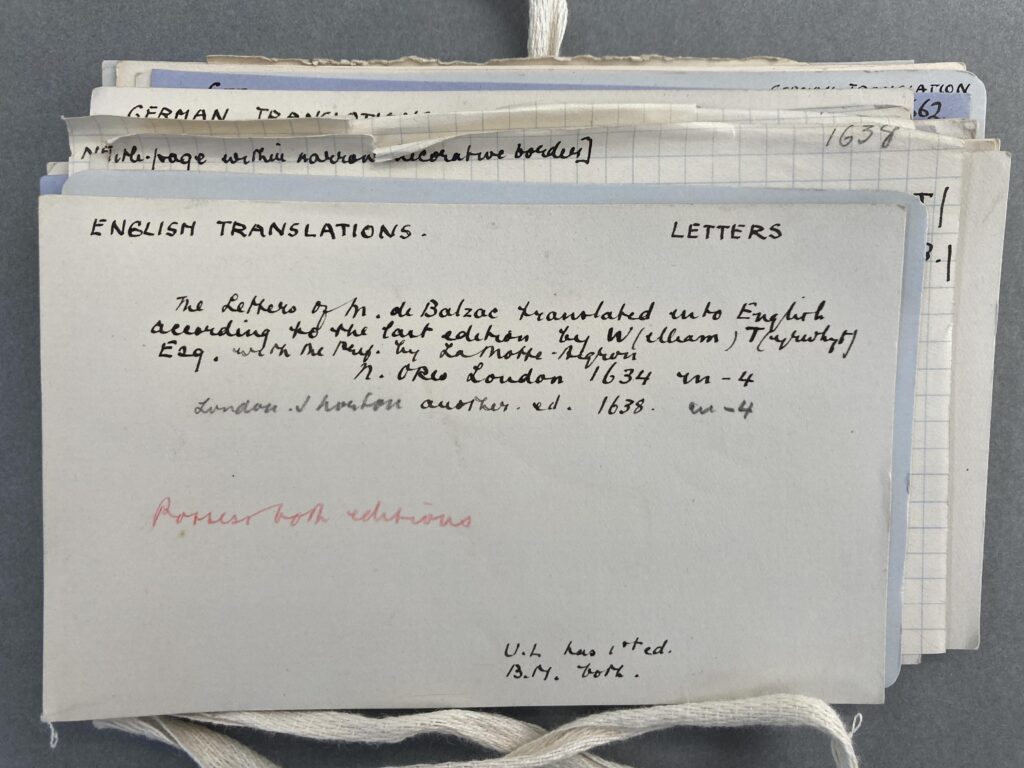 GERMAN TRANSLATION
662
GERMAN TRANSLATIONS
1638
Title-page within narrow decorative border]
T/
B.|
ENGLISH TRANSLATIONS. LETTERS
The Letters of M. de Balzac translated into English
according to the last edition by W(illiam) T(yrwhyt)
Esq. with the Pref. by La Motte-Aigron
N. Okes London 1634 in-4
London. J Norton another. ed. 1638. in-4
Possess both editions
U.L has 1st ed.
B.M. both.